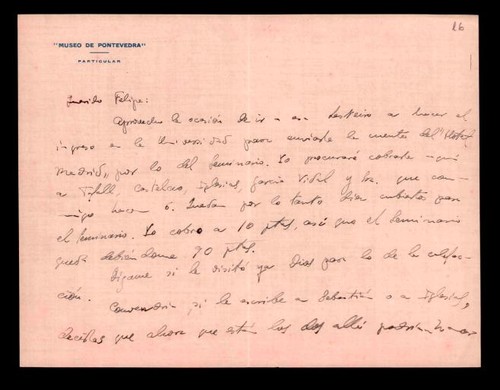 26
"MUSEO DE PONTEVEDRA"
PARTICULAR
Querido Felipe:
Aprovecho la ocasión de ir a esa a hacer el
ingreso en la Universidad para enviarle la cuenta del Hotel
Madrid, por lo del Seminario. Lo procuraré cobrarle aquí
a Castelao, Iglesias, García Vidal y que con-
migo hacen 6. Quedan por lo tanto días cubiertos para
el Seminario. Lo cobro a 10 ptas, así que el Seminario
queda debiéndome 90 ptas.
Dígame si le visitó ya Dios para lo de la calefac-
ción.
Convendría, si le escribe a Sebastián o a Iglesias,
decirles que ahora que están los dos allí podrían